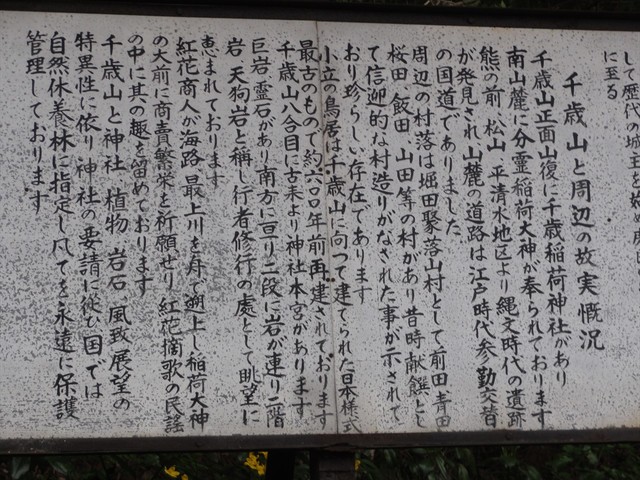 して歴代の城主を始め
に至る
千歳山と周辺の故実慨況
千歳山正面山復に千歳稲荷神社があり
南山麓に分霊稲荷大神が奉られております
熊の前、松山、平清水地区より縄文時代の遺跡
が発見され山麓の道路は江戸時代参勤交替
の国道でありました
周辺の村落は堀田聚落山村として前田青田
桜田、飯田、山田等の村があり昔時献饌とし
て信迎的な村造りがなされた事が示されて
おり珍らしい存在であります
小立の鳥居は千歳山に向つて建てられた日本様式
最古のもので約六〇〇年前再建されております
千歳山八合目に古来より神社本宮があります
巨岩、霊石があり南方に亘り二段に岩が連り二階
岩、天狗岩と称し行者修行の處として眺望に
恵まれております
紅花商人が海路、最上川を舟で遡上し稲荷大神
の大前に商賣繁栄を祈願せり、紅花摘歌の民謡
の中に其の趣を留めております
千歳山と神社、植物、岩石、風致、展望の
特異性に依り神社の要請に従む国では
自然休養林に指定し凡てを永遠に保護
管理しております